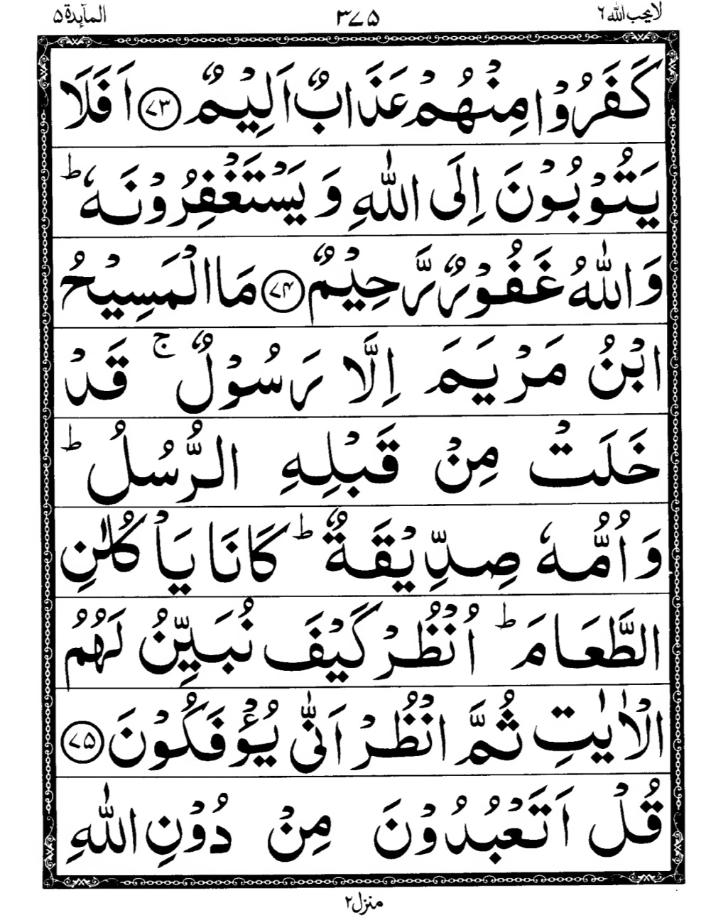 لا یحب الله ٦ ٣٧٥ المآىِٕدة ٥
كَفَرُوْا مِنْهُمْ عَذَابٌ اَلِیْمٌ ﴿۷۳﴾ اَفَلَا
یَتُوْبُوْنَ اِلَی اللّٰهِ وَ یَسْتَغْفِرُوْنَهٗ ؕ
وَ اللّٰهُ غَفُوْرٌ رَّحِیْمٌ ﴿۷۴﴾ مَا الْمَسِیْحُ
ابْنُ مَرْیَمَ اِلَّا رَسُوْلٌ ۚ قَدْ
خَلَتْ مِنْ قَبْلِهِ الرُّسُلُ ؕ
وَ اُمُّهٗ صِدِّیْقَةٌ ؕ كَانَا یَاْكُلٰنِ
الطَّعَامَ ؕ اُنْظُرْ كَیْفَ نُبَیِّنُ لَهُمُ
الْاٰیٰتِ ثُمَّ انْظُرْ اَنّٰی یُؤْفَكُوْنَ ﴿۷۵﴾
قُلْ اَتَعْبُدُوْنَ مِنْ دُوْنِ اللّٰهِ
منزل ٢